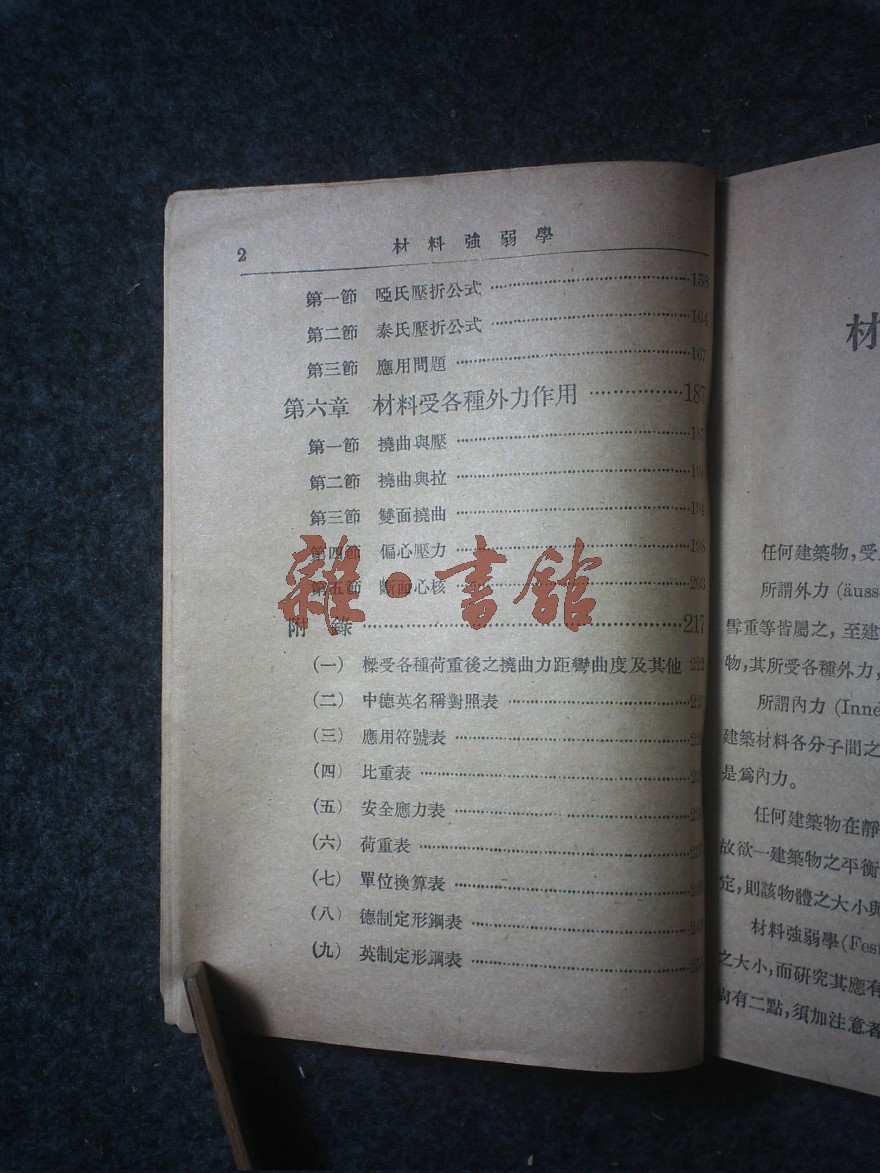 2 材料強弱學
第一節 啞氏壓折公式 158
第二節 泰氏壓折公式 164
第三節 應用問題 167
第六章 材料受各種外力作用 187
第一節 撓曲與壓 187
第二節 撓曲與拉
第三節 雙面撓曲 194
第四節 偏心壓力
第五節 斷面心核 203
附錄 217
(一) 樑受各種荷重後之撓曲力距彎曲度及其他 222
(二) 中德英名稱對照表
(三) 應用符號表
(四) 比重表
(五) 安全應力表
(六) 荷重表
(七) 單位換算表
(八) 德制定形鋼表
(九) 英制定形鋼表
雜·書館
材
任何建築物,受
所謂外力 (äuss
雪重等皆屬之, 至建
物,其所受各種外力,
所謂內力 (Inne
建築材料各分子間之
是爲內力。
任何建築物在靜
故欲一建築物之平衡
定,則該物體之大小與
材料強弱學(Fes
之大小,而研究其應有
尚有二點,須加注意者